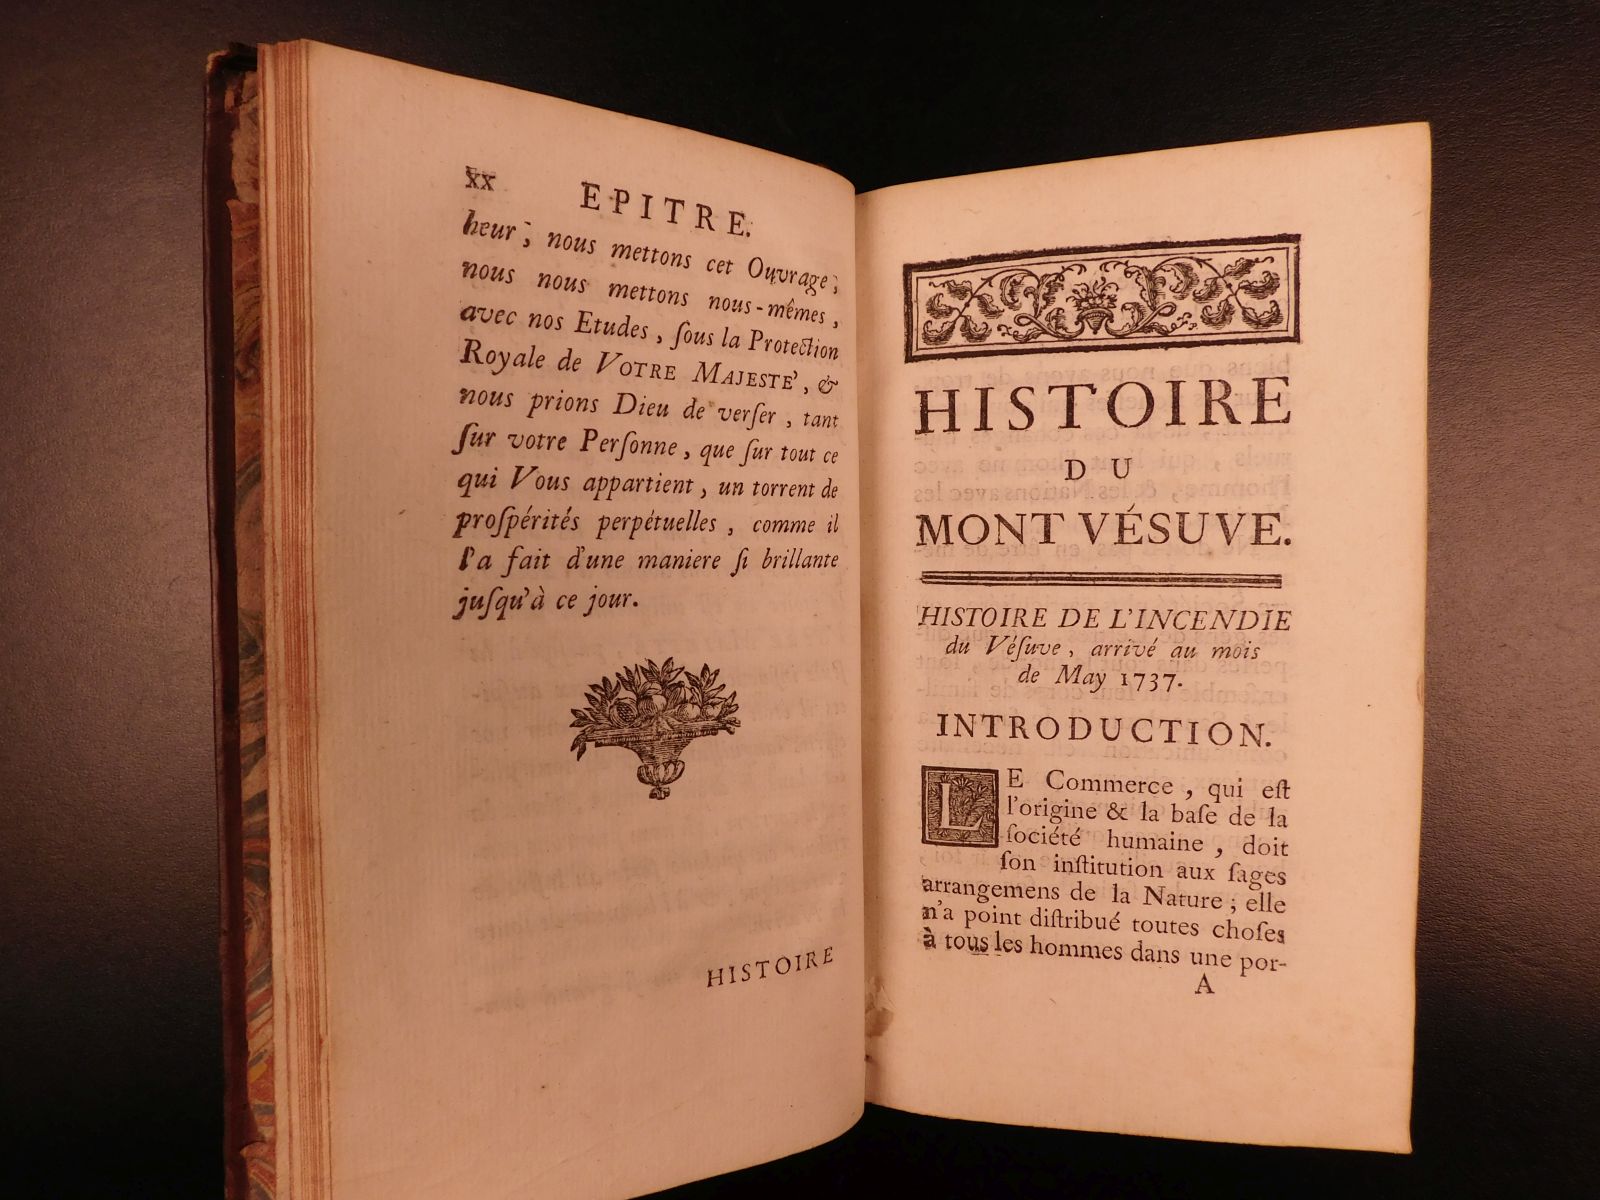 xx EPITRE.
heur; nous mettons cet Ouvrage;
nous nous mettons nous-mêmes,
avec nos Etudes, ſous la Protection
Royale de VOTRE MAJESTE', &
nous prions Dieu de verſer, tant
ſur votre Perſonne, que ſur tout ce
qui Vous appartient, un torrent de
proſpérités perpétuelles, comme il
l'a fait d'une maniere ſi brillante
juſqu'à ce jour.
HISTOIRE
HISTOIRE
DU
MONT VÉSUVE.
HISTOIRE DE L'INCENDIE
du Véſuve, arrivé au mois
de May 1737.
INTRODUCTION.
LE Commerce, qui eſt
l'origine & la baſe de la
ſociété humaine, doit
ſon inſtitution aux ſages
arrangemens de la Nature; elle
n'a point diſtribué toutes choſes
à tous les hommes dans une por-
A